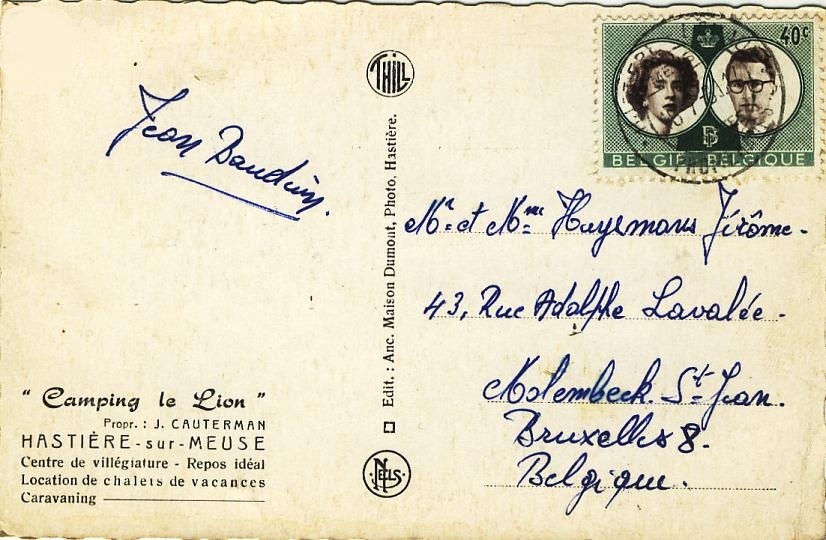 THILL
40c
BELGIË-BELGIQUE
Jean Bauduin.
Mr. et Mme Huysmans Jérôme.
43, Rue Adolphe Lavalée.
Molembeck. St-Jean.
Bruxelles 8.
Belgique.
Edit. : Anc. Maison Dumont, Photo, Hastière.
NELS
" Camping le Lion "
Propr. : J. CAUTERMAN
HASTIÈRE-sur-MEUSE
Centre de villégiature - Repos idéal
Location de chalets de vacances
Caravaning